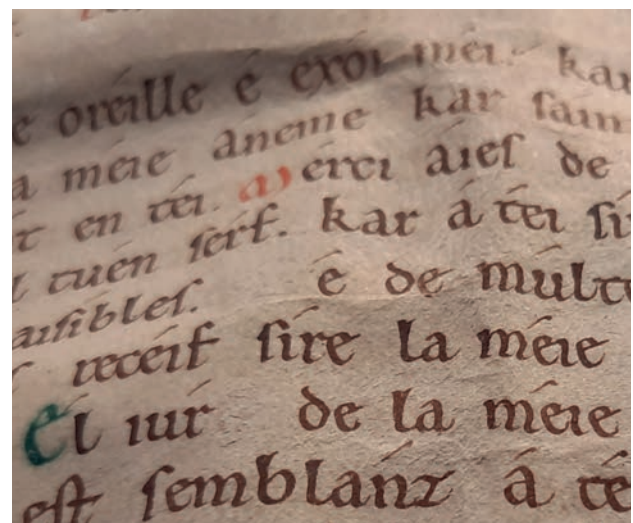 e oreille é exoi mei. kar
a meie aneme kar sain
t en tei. Merci aies de
l tuen serf. kar á tei si
aisibles. é de multe
receif sire la meie
El iur de la meie
est semblanz á te